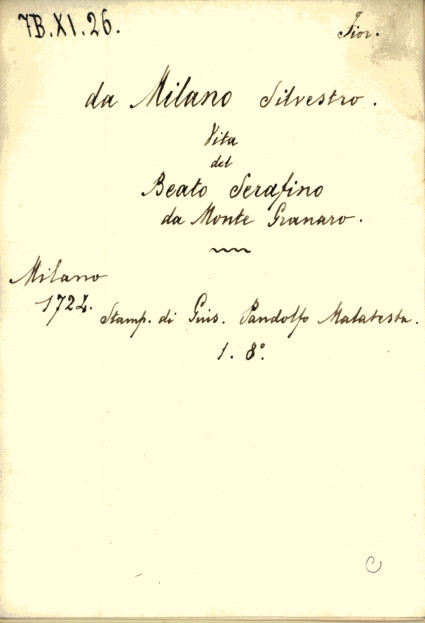 7B.XI.26.
Fior.
da Milano Silvestro.
Vita
del
Beato Serafino
da Monte Granaro.
Milano
172
Stamp. di Gius. Pandolfo Malatesta.
1. 8°.
C